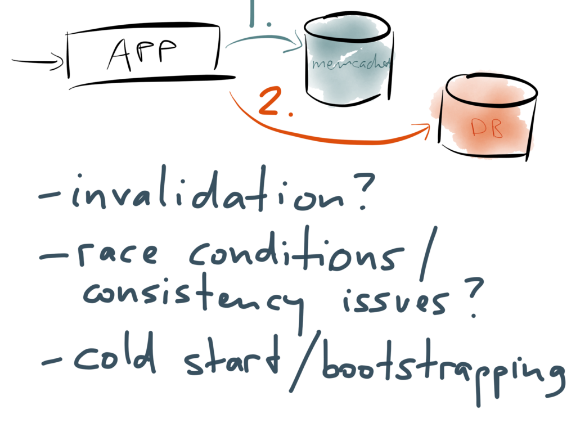 1.
APP
memcached
2.
DB
- invalidation?
- race conditions/
consistency issues?
- cold start/bootstrapping